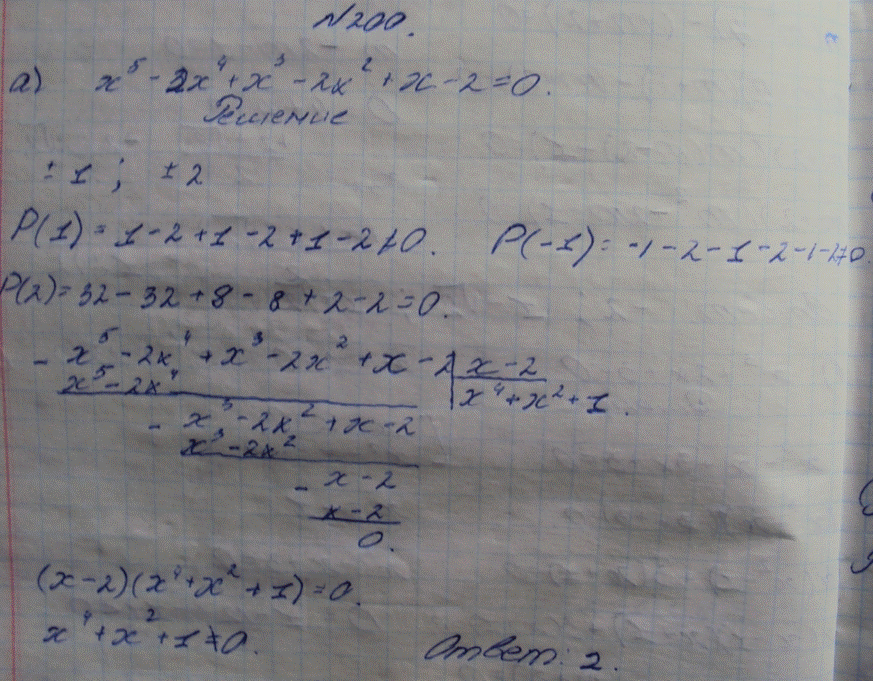 N200.
а) x⁵ - 2x⁴ + x³ - 2x² + x - 2 = 0.
Решение
± 1 ; ± 2
P(1) = 1 - 2 + 1 - 2 + 1 - 2 ≠ 0. P(-1) = -1 - 2 - 1 - 2 - 1 - 2 ≠ 0.
P(2) = 32 - 32 + 8 - 8 + 2 - 2 = 0.
- x⁵ - 2x⁴ + x³ - 2x² + x - 2 | x - 2
x⁵ - 2x⁴ | x⁴ + x² + 1.
- x³ - 2x² + x - 2
x³ - 2x²
- x - 2
x - 2
0.
(x - 2)(x⁴ + x² + 1) = 0.
x⁴ + x² + 1 ≠ 0.
Ответ: 2.